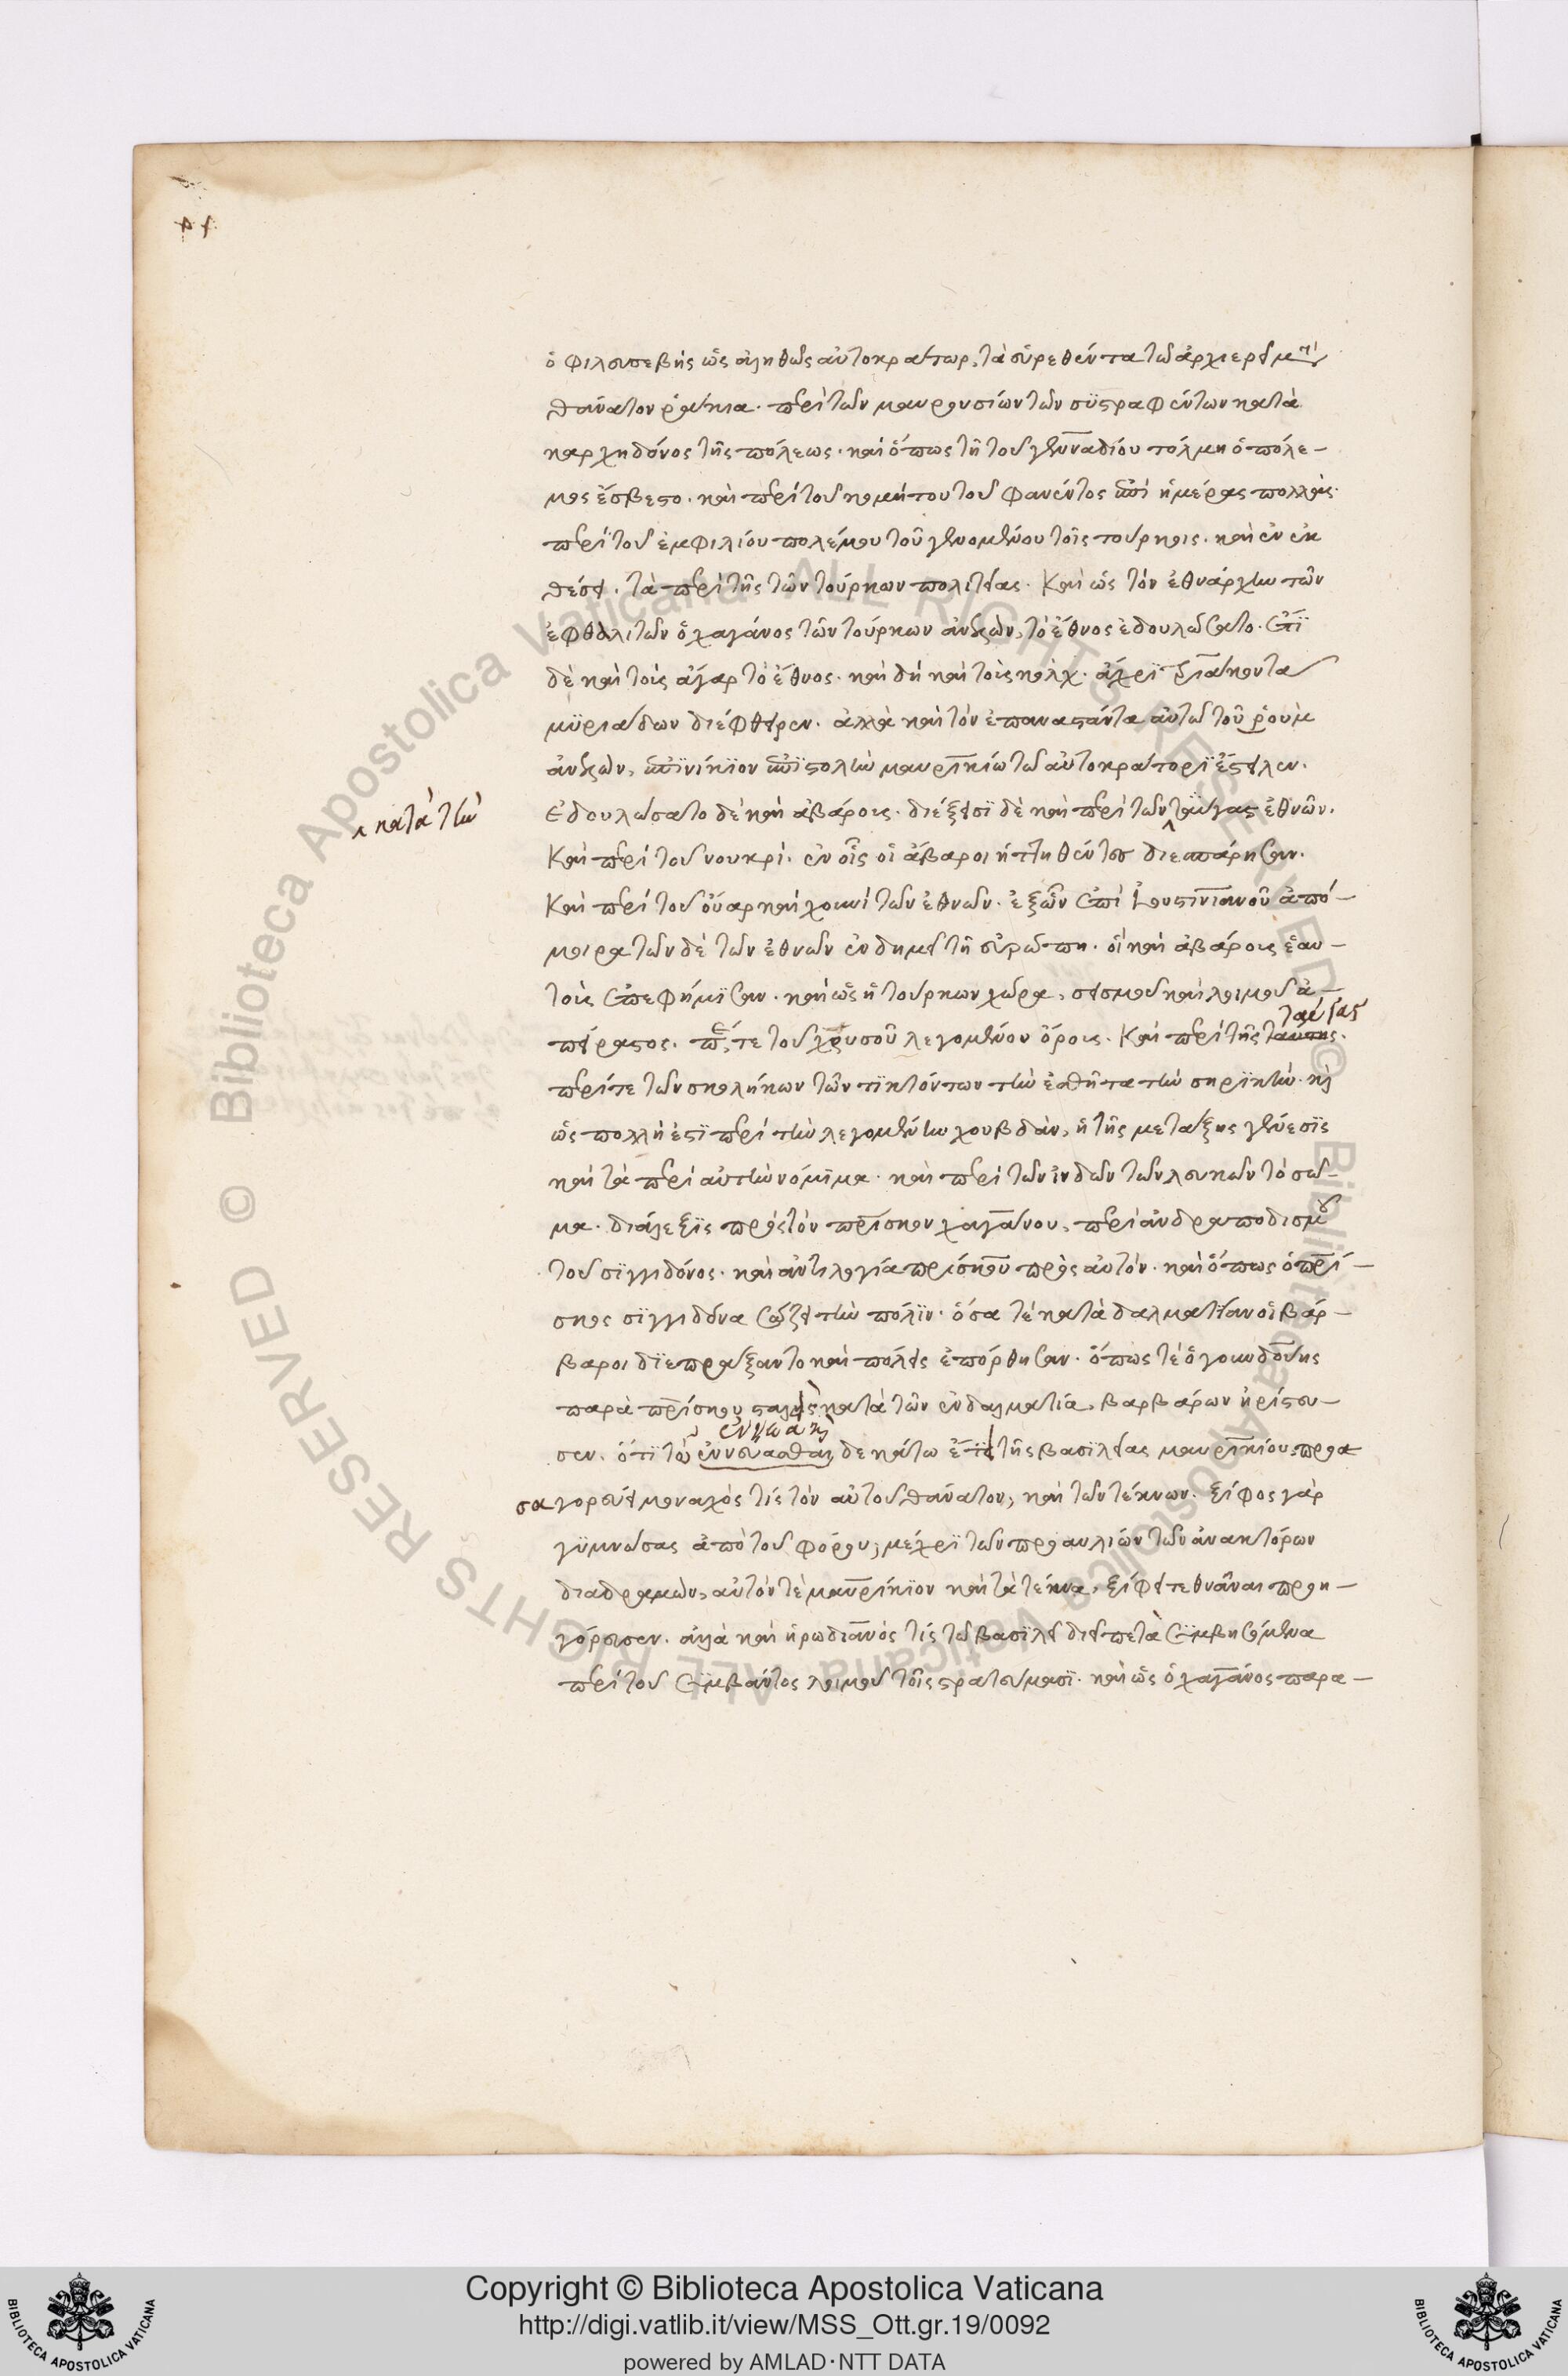 ὁ φιλευσεβὴς ὡς ἀληθῶς αὐτοκράτωρ, τὰ εὑρεθέντα τῶ ἀρχιερεῖ μετὰ
θάνατον ῥάκια. περὶ τῶν μαυρουσίων τῶν συστραφέντων κατὰ
καρχηδόνος τῆς πόλεως. καὶ ὅπως τῆ τοῦ γενναδίου τόλμη ὁ πόλε-
μος ἔσβεστο. καὶ περὶ τοῦ κομήτου τοῦ φανέντος ἐπὶ ἡμέρας πολλάς.
περὶ τοῦ ἐμφιλίου πολέμου τοῦ γενομένου τοῖς τούρκοις. καὶ ἐν ἐκ
θέσει. τὰ περὶ τῆς τῶν τούρκων πολιτείας. Καὶ ὡς τὸν ἐθνάρχην τῶν
ἐφθαλιτῶν ὁ χαγάνος τῶν τούρκων ἀνελὼν, τὸ ἔθνος ἐδουλώσατο. ἔτι
δὲ καὶ τοὺς ὀγὰρ τὸ ἔθνος. καὶ δὴ καὶ τοὺς κολχ. ἄχρι τριάκοντα
μυριάδων διέφθειρεν. ἀλλὰ καὶ τὸν ἐπαναστάντα αὐτῶ τοῦ ῥοὺμ
ἀνελὼν, ἐπινίκιον ἐπιστολὴν μαυρικίω τῶ αὐτοκράτορι ἔστειλεν.
Ἐδουλώσατο δὲ καὶ ἀβάροις. διέξεισι δὲ καὶ περὶ τῶν ταύγας ἐθνῶν.
⁁ κατὰ τὴν
Καὶ περὶ τοῦ νουκρί. ἐν οἷς οἱ ἄβαροι ἡττηθέντες διεσπάρησαν.
Καὶ περὶ τοῦ οὐὰρ καὶ χουνὶ τῶν ἐθνῶν. ἐξ ὧν ἐπὶ Ἰουστινιανοῦ ἀπό-
μοιρα τῶνδε τῶν ἐθνῶν ἐνδημεῖ τῆ εὐρώπη. οἳ καὶ ἀβάροις ἑαυ-
τοὺς ἐπεφήμισαν. καὶ ὡς ἡ τούρκων χώρα, σεισμοῦ καὶ λοιμοῦ ἀ-
πείρατος. περί τε τοῦ χρυσοῦ λεγομένου ὄρους. Καὶ περὶ τῆς ταύτης. ταύγας
περί τε τῶν σκωλήκων τῶν τικτόντων τὴν ἐσθῆτα τὴν σηρικήν. καὶ
ὡς πολλὴ ἐστὶ περὶ τὴν λεγομένην χουβδὰν, ἡ τῆς μετάξης γένεσις
καὶ τὰ περὶ αὐτὴν νόμιμα. καὶ περὶ τῶν ἰνδῶν τῶν λευκῶν τὸ σῶ-
μα. διάλεξις πρὸς τὸν πρίσκον χαγάνου, περὶ ἀνδραποδισμοῦ
τοῦ σιγγιδόνος. καὶ ἀντιλογία πρίσκου πρὸς αὐτόν. καὶ ὅπως ὁ πρί-
σκος σιγγιδόνα σώζει τὴν πόλιν. ὅσα τὲ κατὰ δαλματίαν οἱ βάρ-
βαροι διεπράξαντο καὶ πόλεις ἐπόρθησαν. ὅπως τὲ ὁ γουνδούης
παρὰ πρίσκου σταλεὶς κατὰ τῶν ἐν δαλματία, βαρβάρων ἠρίστευ-
σεν. ὅτι τῶ ἐννεακαι δεκάτω ἔτει τῆς βασιλείας μαυρικίου, προα
σαγορεύει μοναχός τις τὸν αὐτοῦ θάνατον, καὶ τῶν τέκνων. ξίφος γὰρ
γυμνώσας ἀπὸ τοῦ φόρου, μέχρι τῶν προαυλίων τῶν ἀνακτόρων
διαδραμὼν, αὐτόν τὲ μαυρίκιον καὶ τὰ τέκνα, ξίφει τεθνᾶναι προη-
γόρευσεν. ἀλλὰ καὶ ἡρωδιανός τις τῶ βασιλεῖ διείπε τὰ συμβησόμενα
περὶ τοῦ συμβάντος λοιμοῦ τοῖς στρατεύμασι. καὶ ὡς ὁ χαγάνος παρα-
Copyright © Biblioteca Apostolica Vaticana
http://digi.vatlib.it/view/MSS_Ott.gr.19/0092
powered by AMLAD·NTT DATA